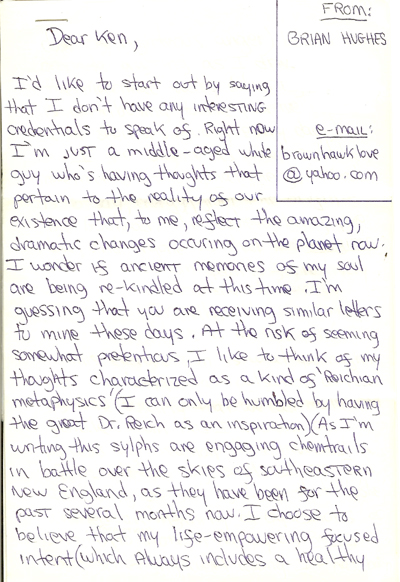 FROM:
BRIAN HUGHES
e-mail:
brownhawklove
@yahoo.com
Dear Ken,
I'd like to start out by saying
that I don't have any interesting
credentials to speak of. Right now
I'm just a middle-aged white
guy who's having thoughts that
pertain to the reality of our
existence that, to me, reflect the amazing,
dramatic changes occuring on the planet now.
I wonder if ancient memories of my soul
are being re-kindled at this time. I'm
guessing that you are receiving similar letters
to mine these days. At the risk of seeming
somewhat pretentious, I like to think of my
thoughts characterized as a kind of 'Reichian
metaphysics' (I can only be humbled by having
the great Dr. Reich as an inspiration)(As I'm
writing this sylphs are engaging chemtrails
in battle over the skies of southeastern
New England, as they have been for the
past several months now. I choose to
believe that my life-empowering focused
intent (which Always includes a healthy